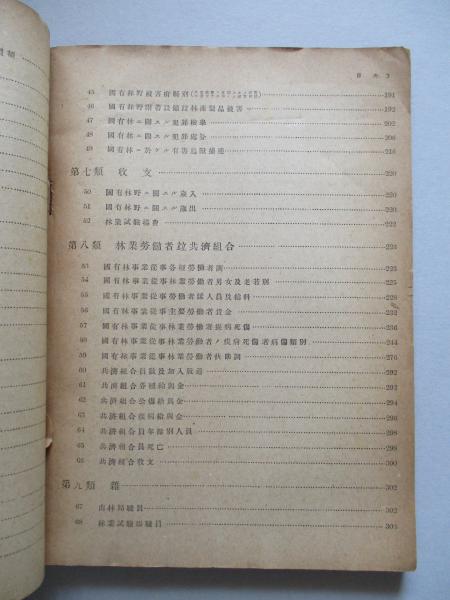 目次 3
45 國有林野被害府縣別 191
46 國有林野附著設備設林産製品被害 192
47 國有林ニ關スル犯罪檢擧 202
48 國有林ニ關スル犯罪處分 206
49 國有林ニ於ケル有害鳥獸捕獲 216
第七類 收支 220
50 國有林野ニ關スル歳入 220
51 國有林野ニ關スル歳出 220
52 林業試驗場費 222
第八類 林業勞働者竝共濟組合 223
53 國有林事業從事各種勞働者調 223
54 國有林事業從事林業勞働者男女及老若別 225
55 國有林事業從事勞働者採人員及給料 228
56 國有林事業從事主要勞働者賃金 232
57 國有林事業從事林業勞働者疾病死傷 236
58 國有林事業從事林業勞働者ノ疾病死傷者病傷類別 244
59 國有林事業從事林業勞働者扶助調 276
60 共濟組合員數及加入脱退 292
61 共濟組合各種給與金 294
62 共濟組合公傷給與金 296
63 共濟組合疾病給與金 298
64 共濟組合員年齡別人員 298
65 共濟組合員死亡 298
66 共濟組合收支 300
第九類 雜 302
67 山林局職員 302
68 林業試驗場職員 303